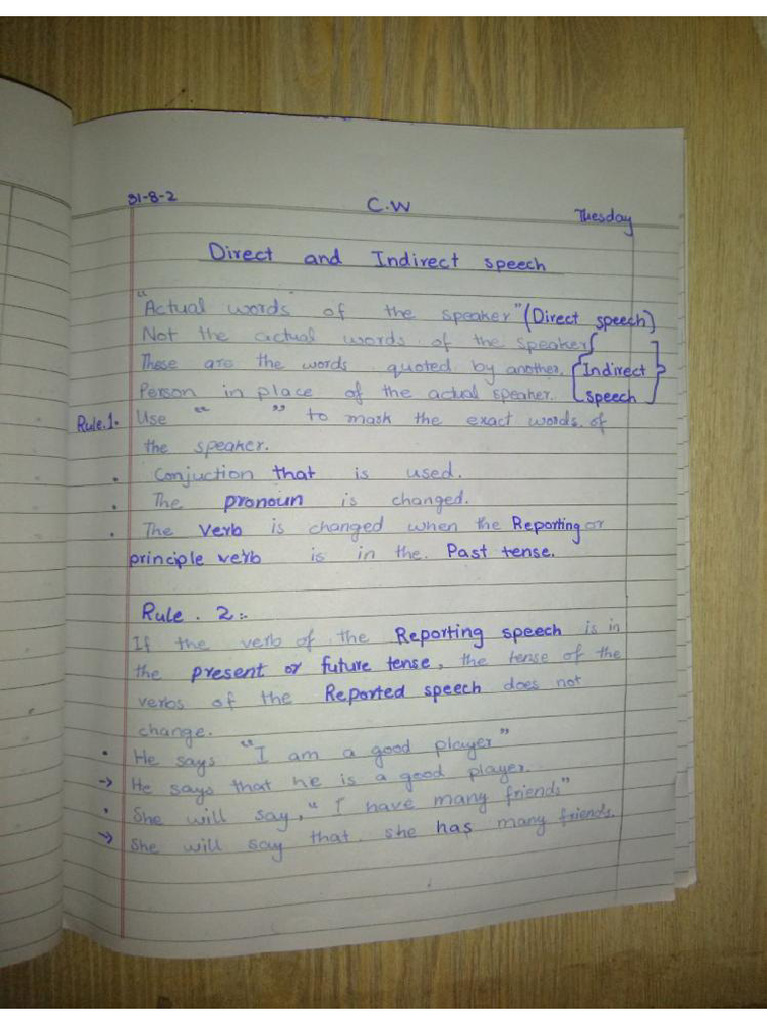 31-8-2
C.W
Tuesday
Direct and Indirect speech
"Actual words of the speaker" (Direct speech)
Not the actual words of the speaker
These are the words quoted by another. [Indirect
Person in place of the actual speaker. speech]
Rule.1. Use " " to mask the exact words of
the speaker.
. Conjuction that is used.
. The pronoun is changed.
. The verb is changed when the Reporting or
principle verb is in the. Past tense.
Rule. 2:.
If the verb of the Reporting speech is in
the present or future tense, the tense of the
verbs of the Reported speech does not
change.
• He says "I am a good player"
→ He says that he is a good player.
• She will say, "I have many friends"
→ She will say that she has many friends.